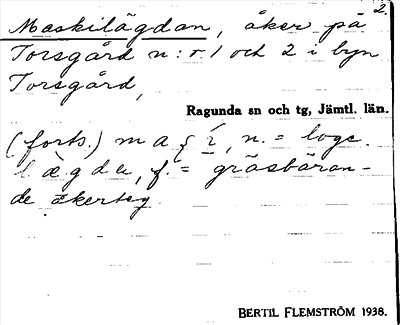 2.
Maskilägdan, åker på
Torsgård n:r 1 och 2 i byn
Torsgård,
Ragunda sn och tg, Jämtl. län.
(forts.) m a ʃ í, n. = loge.
l æ g d a, f. = gräsbäran-
de åkerteg.
BERTIL FLEMSTRÖM 1938.